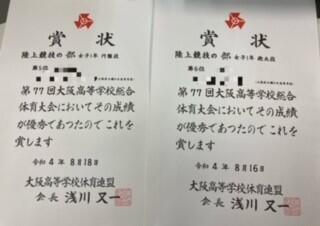 賞 状
陸上競技の部 女子1年 円盤投
第5位
第77回大阪高等学校総合
体育大会においてその成績
が優秀であつたのでこれを
賞します
令和 4年 8月18日
大阪高等学校体育連盟
会長 浅川 又一
賞 状
陸上競技の部 女子1年 砲丸投
第6位
第77回大阪高等学校総合
体育大会においてその成績
が優秀であつたのでこれを
賞します
令和 4年 8月16日
大阪高等学校体育連盟
会長 浅川 又一